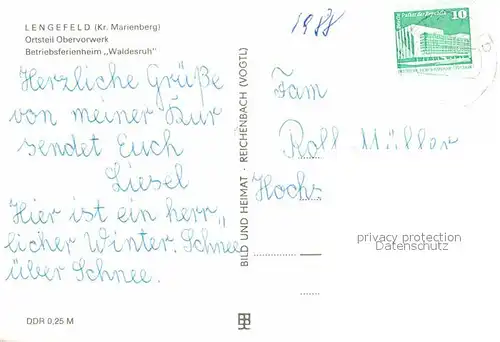 LENGEFELD (Kr. Marienberg)
Ortsteil Obervorwerk
Betriebsferienheim „Waldesruh"
1988
10
Herzliche Grüße
von meiner Kur
sendet Euch
Liesel
Hier ist ein herr„
licher Winter. Schnee
über Schnee.
DDR 0,25 M
BILD UND HEIMAT · REICHENBACH (VOGTL)
Fam
Rolf Müller
Hochs
privacy protection
Datenschutz